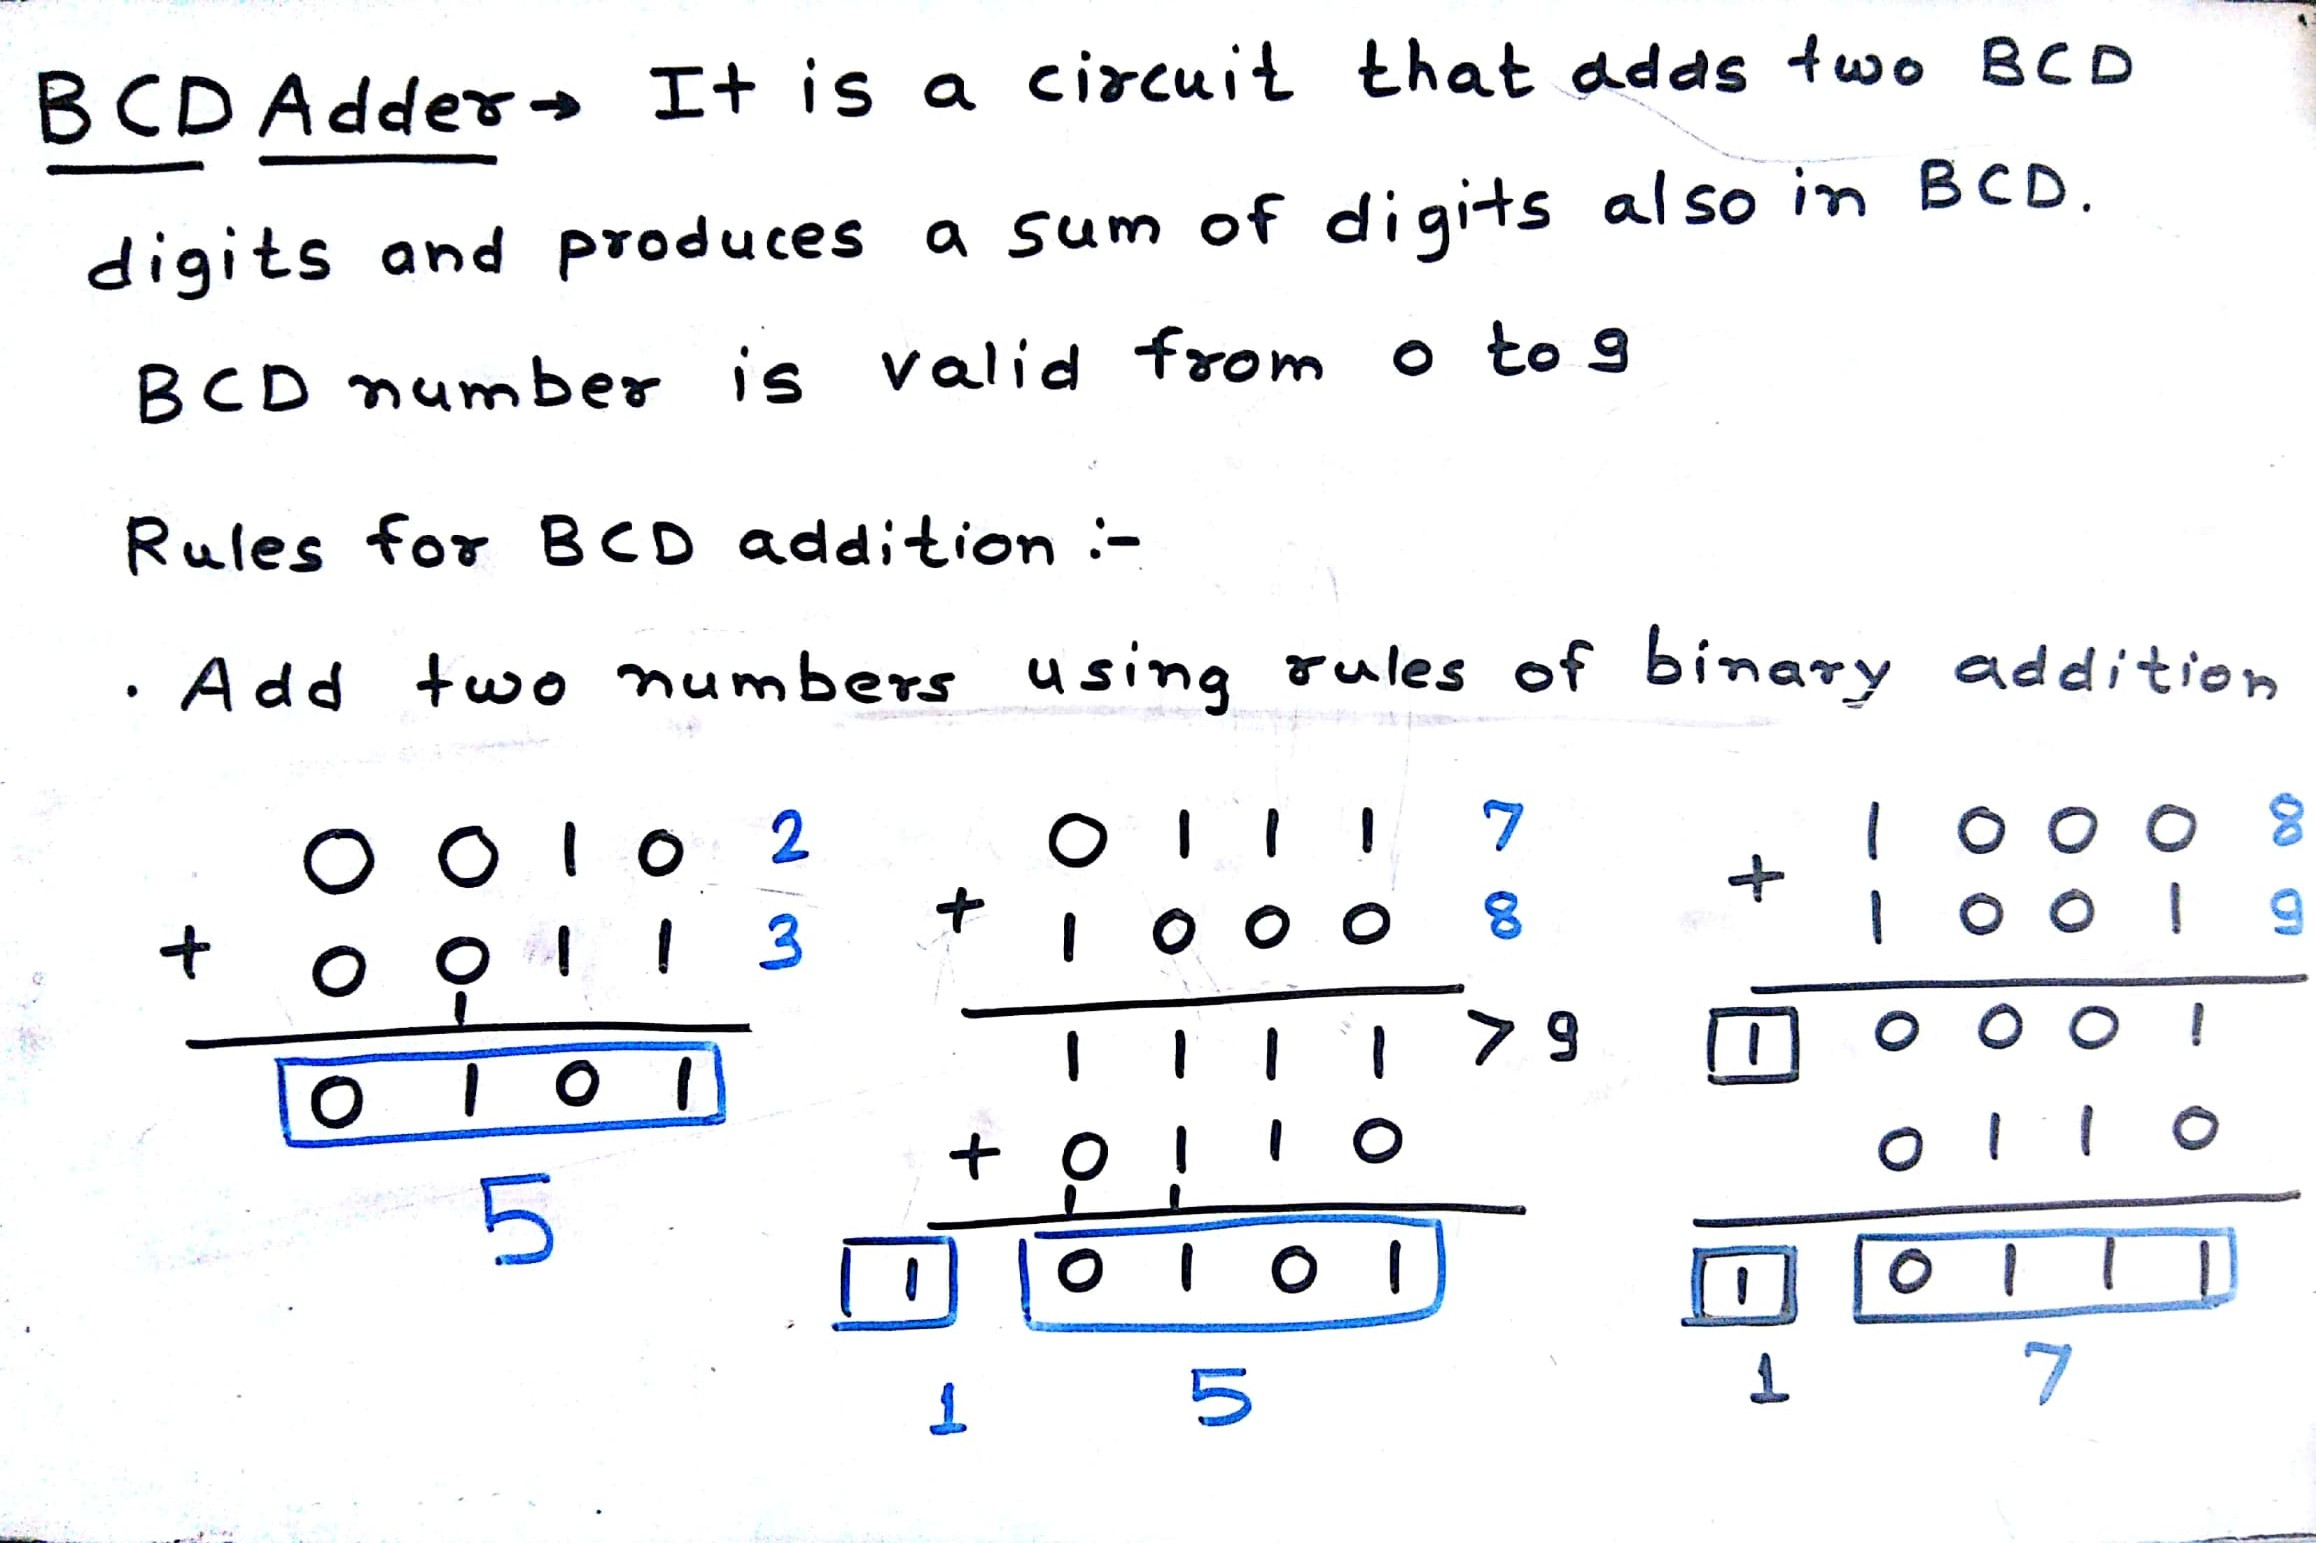 BCD Adder→ It is a circuit that adds two BCD
digits and produces a sum of digits also in BCD.
BCD number is valid from 0 to 9
Rules for BCD addition :-
· Add two numbers using rules of binary addition
0 0 1 0 2
+ 0 0 1 1 3
1
0 1 0 1
5
0 1 1 1 7
+ 1 0 0 0 8
1 1 1 1 > 9
+ 0 1 1 0
1 1
1 0 1 0 1
1 5
1 0 0 0 8
+ 1 0 0 1 9
1 0 0 0 1
0 1 1 0
1 0 1 1 1
1 7